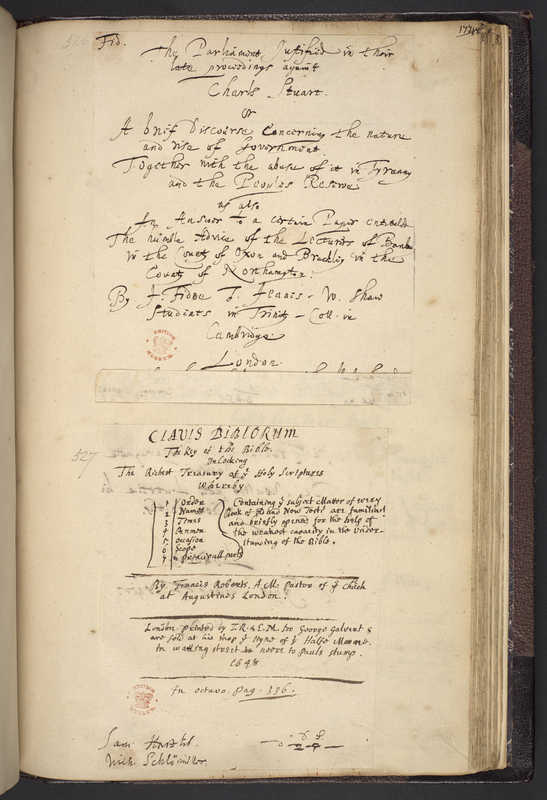 526
Fid.
The Parliament Justified in their
late proceedings against
Charls Stuart.
or
A brief Discourse Concerning the nature
and rise of Government.
Together with the abuse of it in Tyranny
and the Peoples Reserve
as also
An Answer to a certain Paper intituled
The humble Advice of the Lecturers of Banbury
in the County of Oxon and Brackly in the
County of Northampton.
By J. Fidoe T. Jeanes - W. Shaw
Students in Trinity - Coll. in
Cambridge.
London.
BRITISH MUSEUM
527
CLAVIS BIBLORUM
The Key of the Bible.
Unlocking
The Richest Treasury of ye Holy Scriptures
Whereby
1 Order
2 Names
3 Times
4 Penmen
5 Occasion
6 Scope
7 principall parts
Containing ye subject Matter of every
Book of Old and New Testt are familiarl
and briefly opened for the help of
the weakest capacity in the Under-
standing of the Bible.
By Francis Roberts. A.M. Pastor of ye Church
at Augustines London.
London printed by T.R. & E.M. for George Calvert &
are sold at his shop ye signe of ye Halfe Moone.
in watling street neere to Pauls stump.
1648
in octavo. Pag. 336.
BRITISH MUSEUM
Sam Hartlib.
Wilh. Schlömiller.